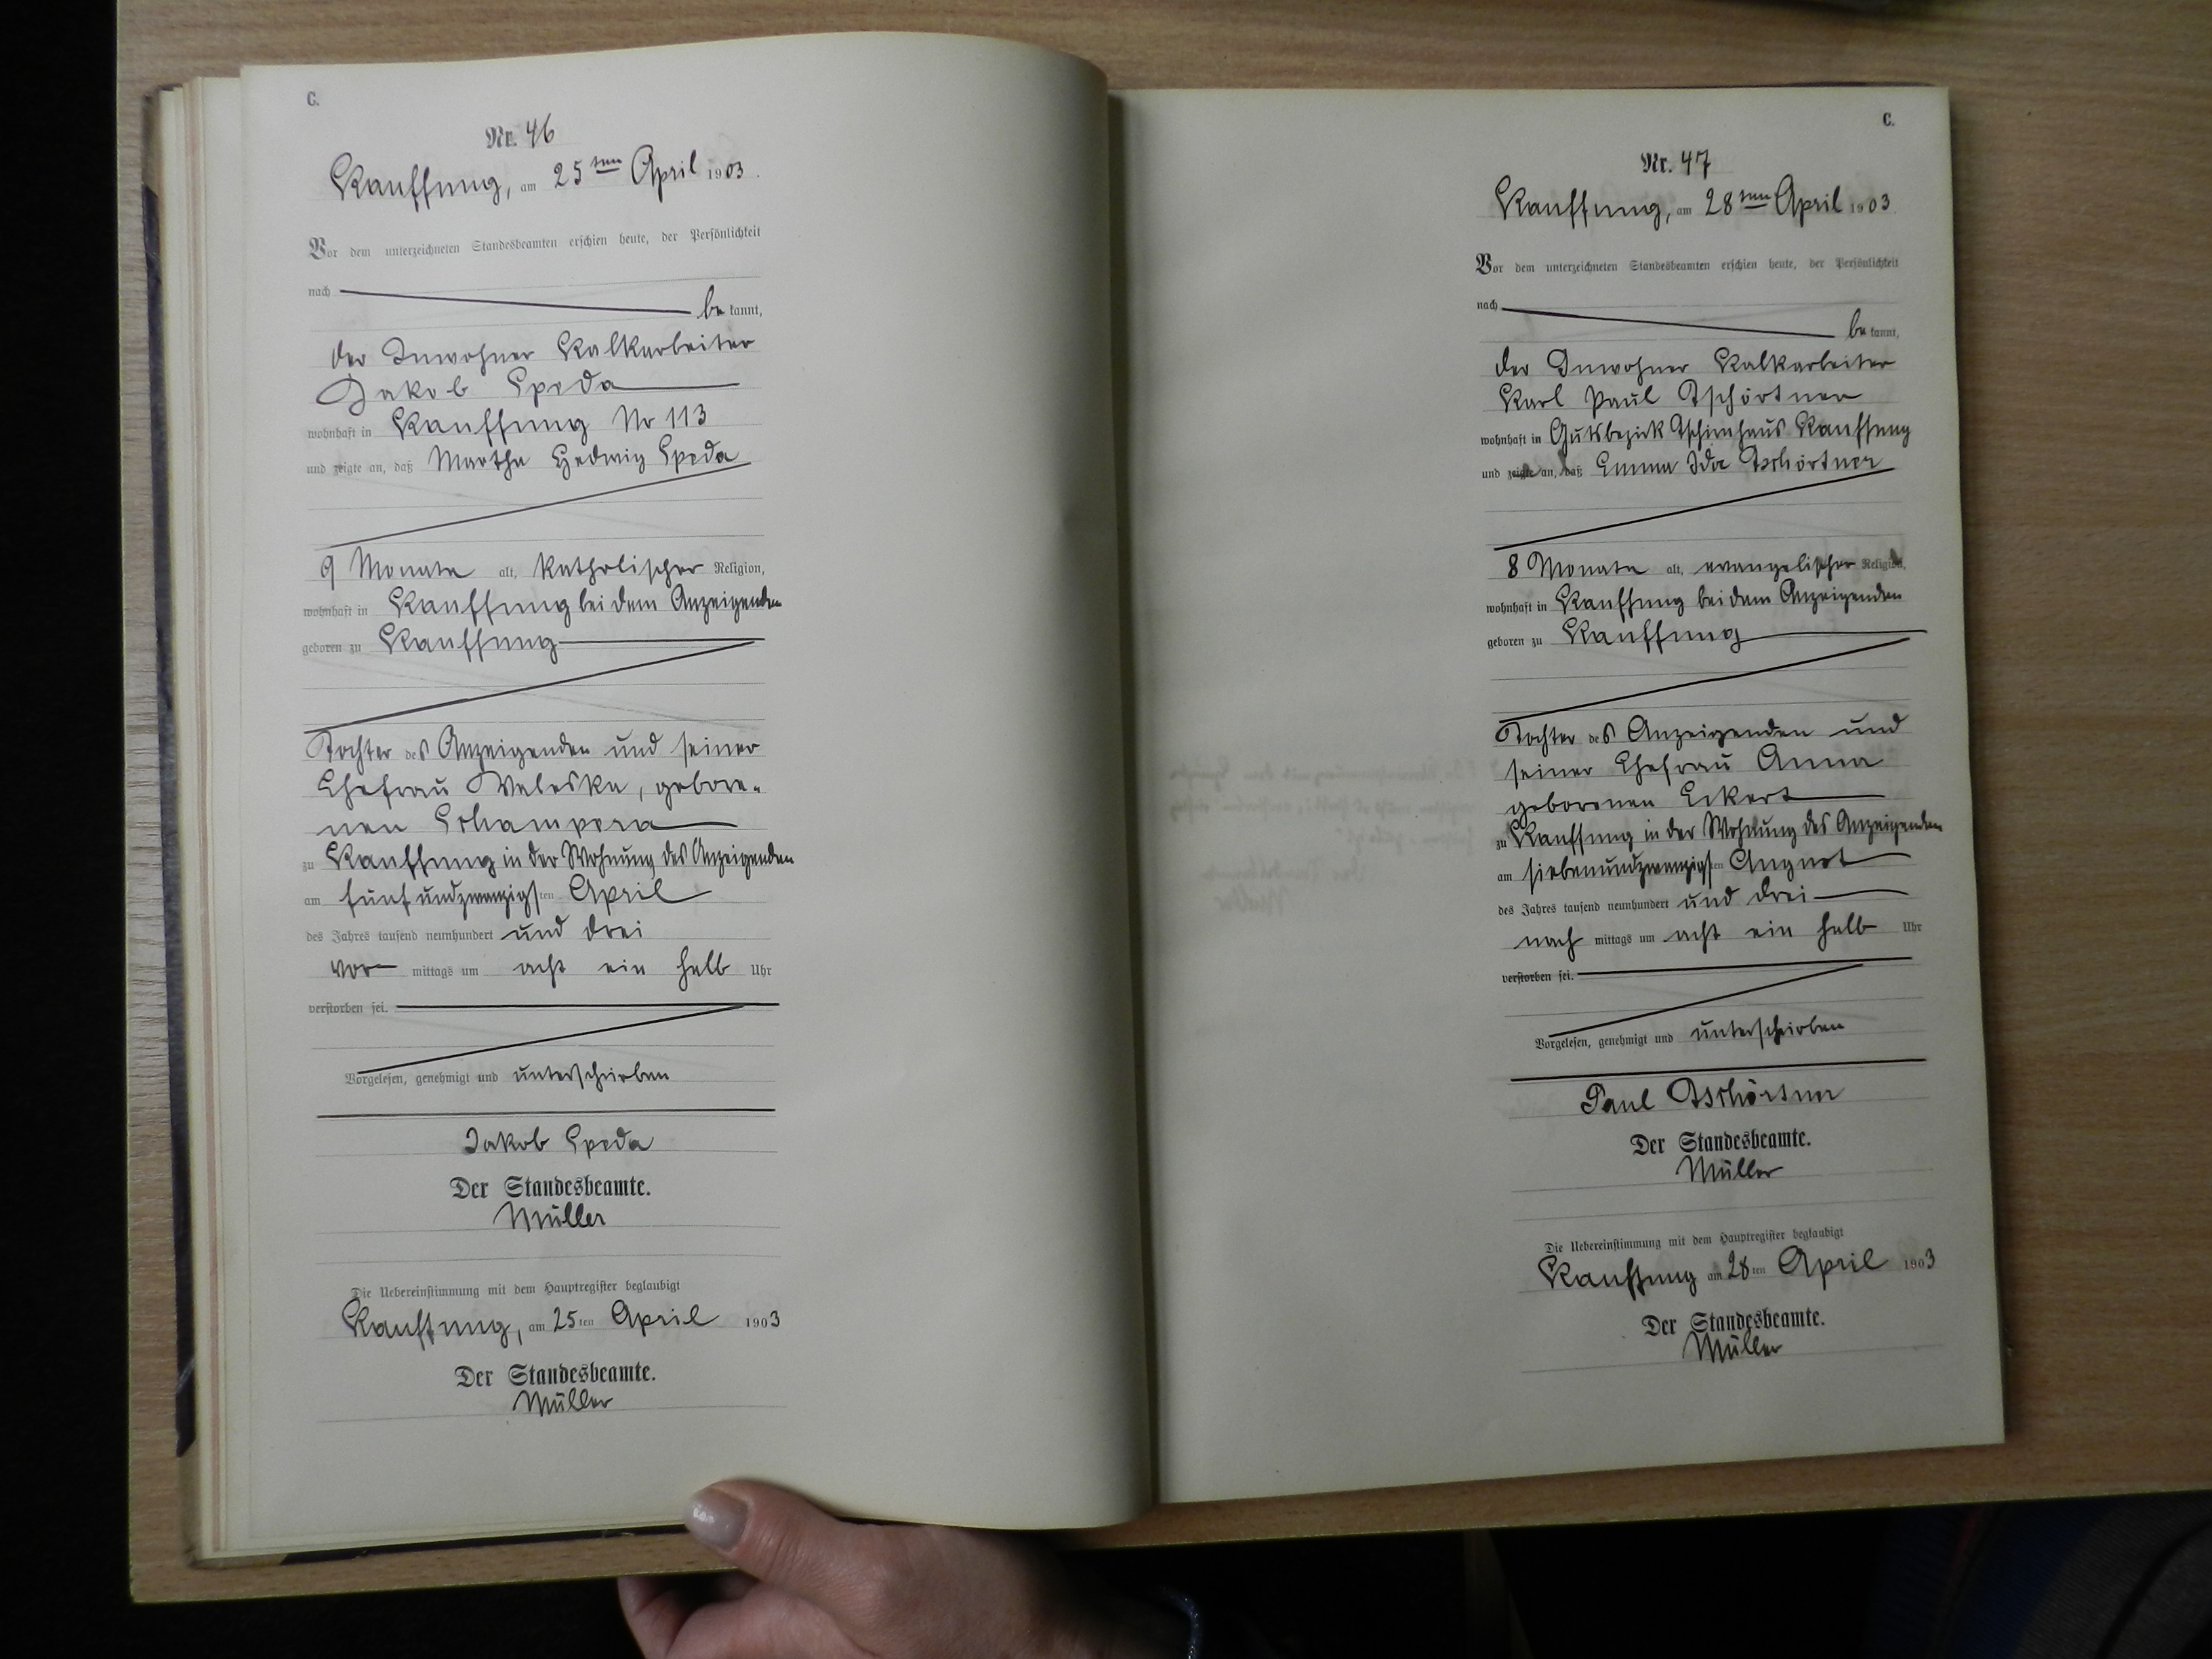 C.
Nr. 46
Kauffung, am 25ten April 1903.
Vor dem unterzeichneten Standesbeamten erschien heute, der Persönlichkeit
nach be kannt,
der Inwohner Kalkarbeiter
Jakob Speda
wohnhaft in Kauffung Nr 113
und zeigte an, daß Martha Hedwig Speda
9 Monate alt, katholischer Religion,
wohnhaft in Kauffung bei dem Anzeigenden
geboren zu Kauffung
Tochter des Anzeigenden und seiner
Ehefrau Waleska, gebore-
nen Schampera
zu Kauffung in der Wohnung des Anzeigenden
am fünfundzwanzigsten April
des Jahres tausend neunhundert und drei
vor mittags um acht ein halb Uhr
verstorben sei.
Vorgelesen, genehmigt und unterschrieben
Jakob Speda
Der Standesbeamte.
Müller
Die Uebereinstimmung mit dem Hauptregister beglaubigt
Kauffung, am 25ten April 1903
Der Standesbeamte.
Müller
C.
Nr. 47
Kauffung, am 28ten April 1903.
Vor dem unterzeichneten Standesbeamten erschien heute, der Persönlichkeit
nach be kannt,
der Inwohner Kalkarbeiter
Karl Paul Tschörtner
wohnhaft in Gutsbezirk Tschirnhaus Kauffung
und zeigte an, daß Emma Ida Tschörtner
8 Monate alt, evangelischer Religion,
wohnhaft in Kauffung bei dem Anzeigenden
geboren zu Kauffung
Tochter des Anzeigenden und
seiner Ehefrau Anna
geborenen Eckert
zu Kauffung in der Wohnung des Anzeigenden
am siebenundzwanzigsten August
des Jahres tausend neunhundert und drei
nach mittags um acht ein halb Uhr
verstorben sei.
Vorgelesen, genehmigt und unterschrieben
Paul Tschörtner
Der Standesbeamte.
Müller
Die Uebereinstimmung mit dem Hauptregister beglaubigt
Kauffung am 28ten April 1903
Der Standesbeamte.
Müller